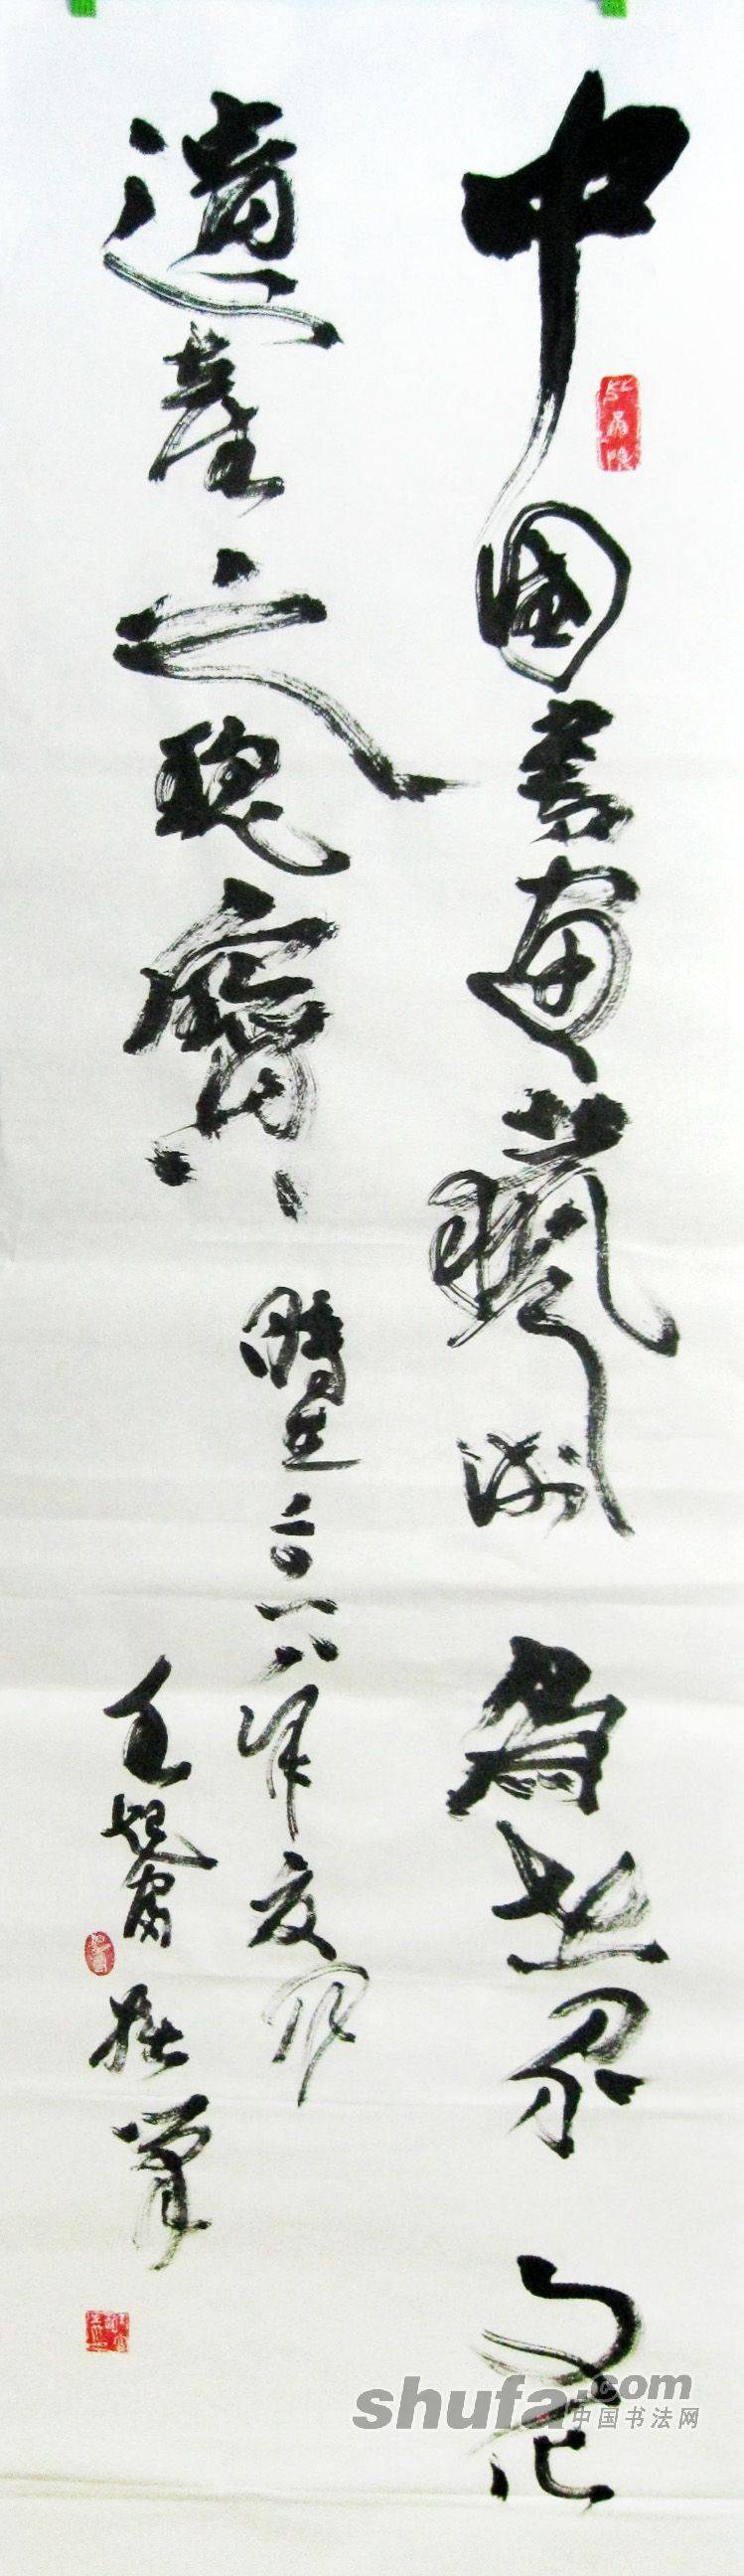 中國書画藝術為世界文化
遺產之瑰寶
時在二〇一八年夜月
拙筆
shufa.com
中国书法网